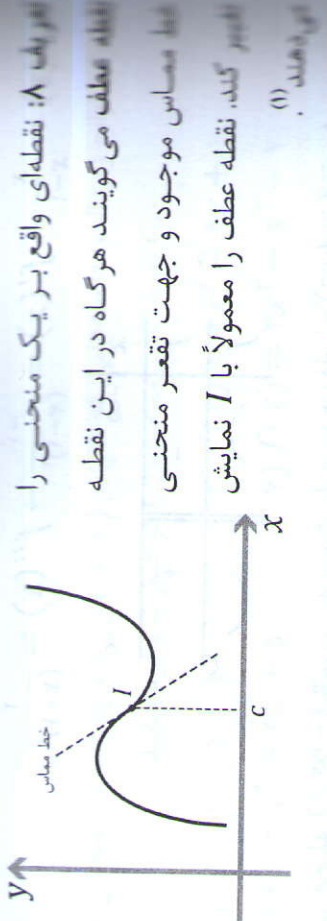 تعریف ۸: نقطه‌ای واقع بر یک منحنی را
نقطه عطف می‌گویند هرگاه در این نقطه
خط مماس موجود و جهت تقعر منحنی
تغییر کند. نقطه عطف را معمولاً با I نمایش
می‌دهند (۱).
y
خط مماس
I
c
x